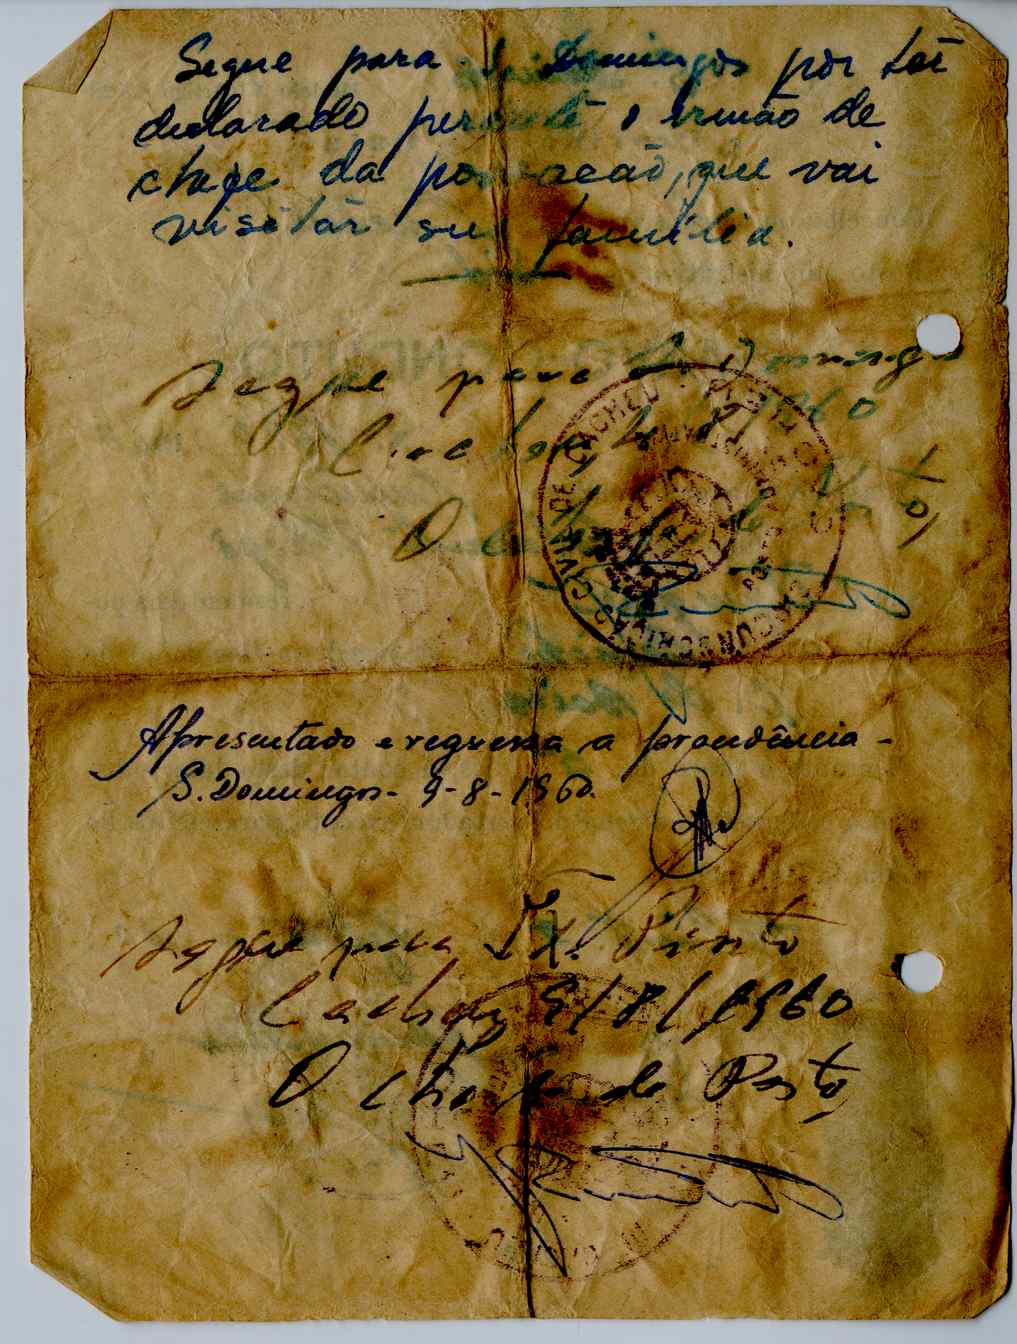 Segue para S. Domingos por ter
declarado perante o irmão de
chefe da povoação, que vai
visitar sua família.
Segue para S. Domingos
Cacheu 1960
O chefe do Posto
CIRCUNSCRIÇÃO CIVIL DE CACHEU
Apresentado e regressa a procedência -
S. Domingos - 9-8-1960.
Segue para Tx. Pinto
Cacheu 9/8/1960
O chefe do Posto